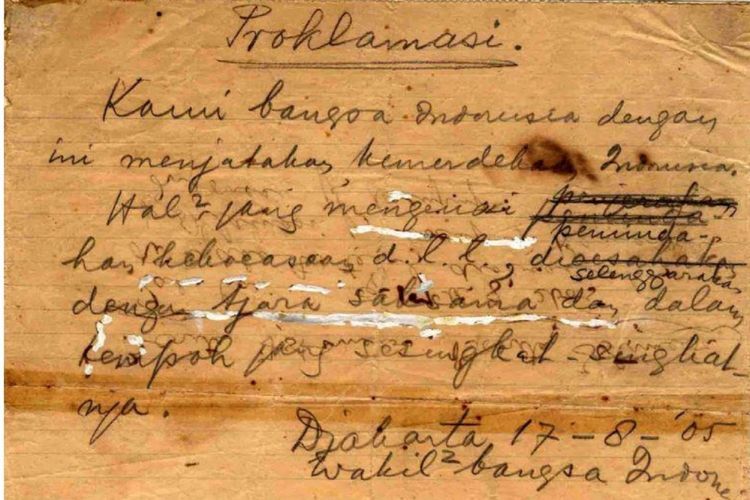 Proklamasi.
Kami bangsa Indonesia dengan
ini menjatakan kemerdekaan Indonesia.
Hal² jang mengenai penjerahan
peminda-
han kekoeasaan, d.l.l., dioesahakan
selenggarakan
dengan tjara saksama dan dalam
tempoh jang sesingkat-singkat-
nja.
Djakarta 17-8-'05
Wakil² bangsa Indone